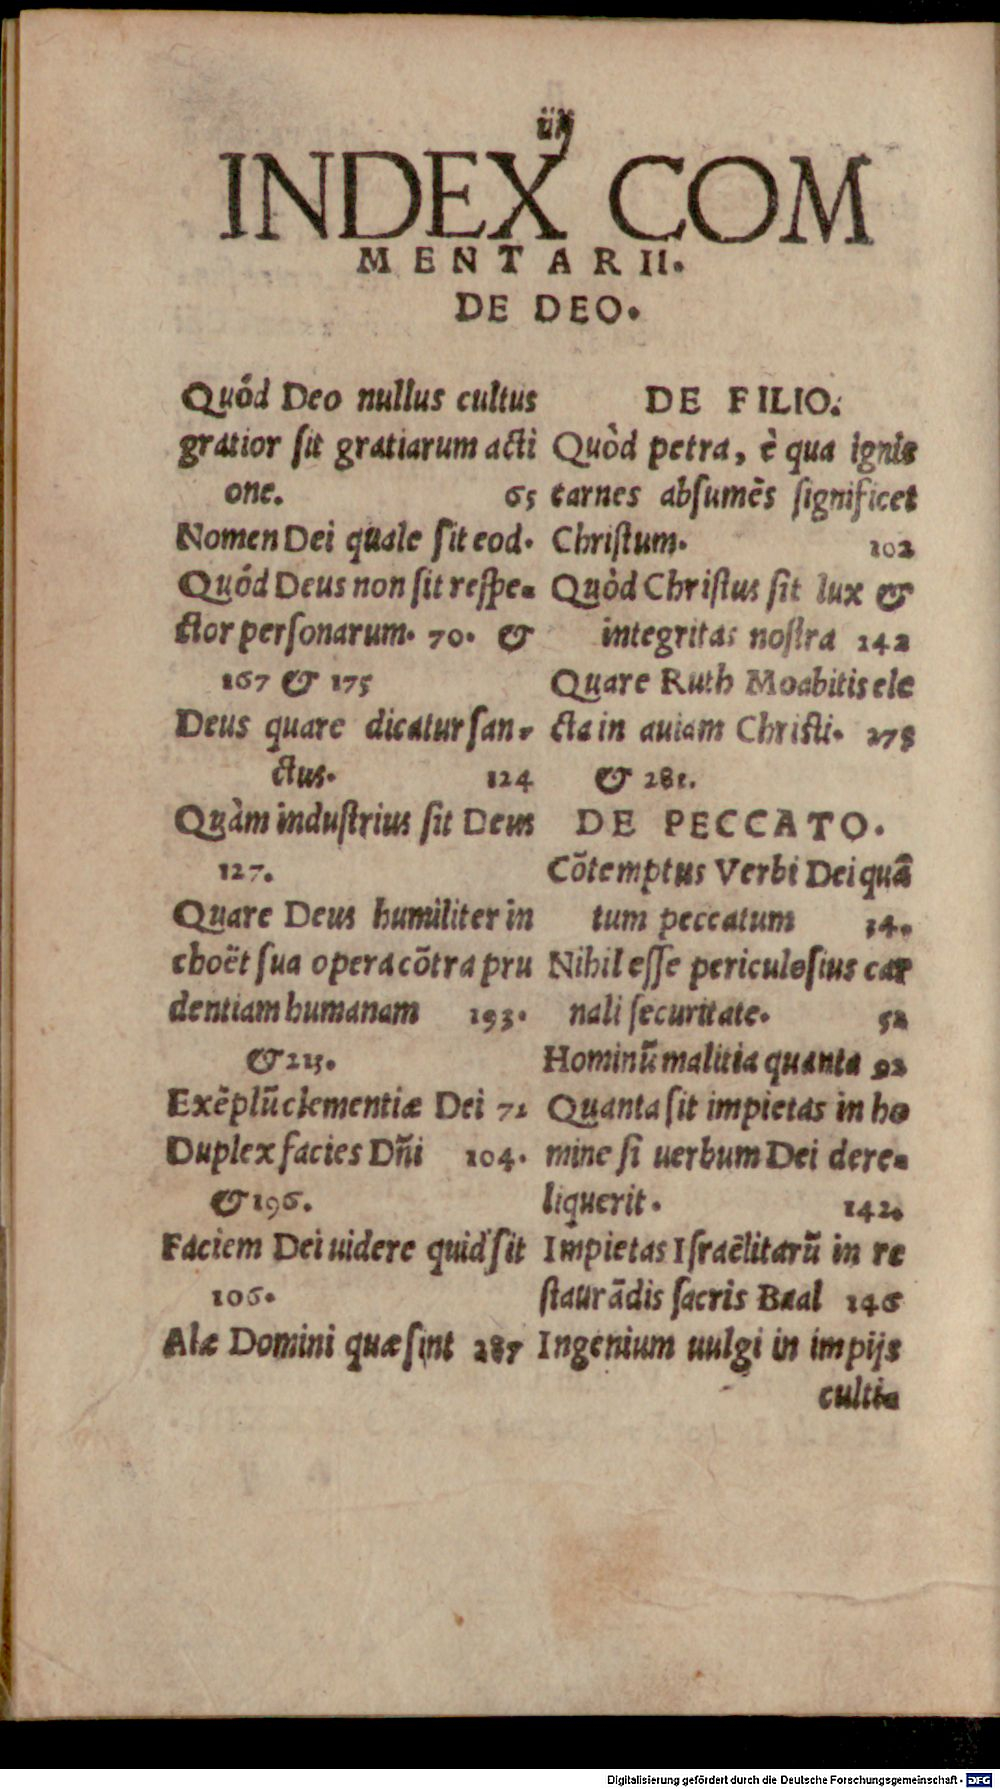 INDEX COM
MENTARII.
DE DEO.
Quód Deo nullus cultus
gratior sit gratiarum acti
one. 65
Nomen Dei quale sit eod.
Quód Deus non sit respe-
ctor personarum. 70. &
167 & 175
Deus quare dicatur san-
ctus. 124
Quàm industrius sit Deus
127.
Quare Deus humiliter in
choët sua opera cõtra pru
dentiam humanam 193.
& 213.
Exẽplũ clementiæ Dei 71
Duplex facies Dñi 104.
& 196.
Faciem Dei uidere quid sit
106.
Alæ Domini quæ sint 287
DE FILIO.
Quòd petra, è qua ignis
carnes absumẽs significet
Christum. 102
Quòd Christus sit lux &
integritas nostra 142
Quare Ruth Moabitis ele
cta in auiam Christi. 278
& 281.
DE PECCATO.
Cõtemptus Verbi Dei quã
tum peccatum 14.
Nihil esse periculosius car
nali securitate. 52
Hominũ malitia quanta 92
Quanta sit impietas in ho
mine si uerbum Dei dere-
liquerit. 142.
Impietas Israëlitarũ in re
staurãdis sacris Baal 146
Ingenium uulgi in impijs
culti-
Digitalisierung gefördert durch die Deutsche Forschungsgemeinschaft - DFG